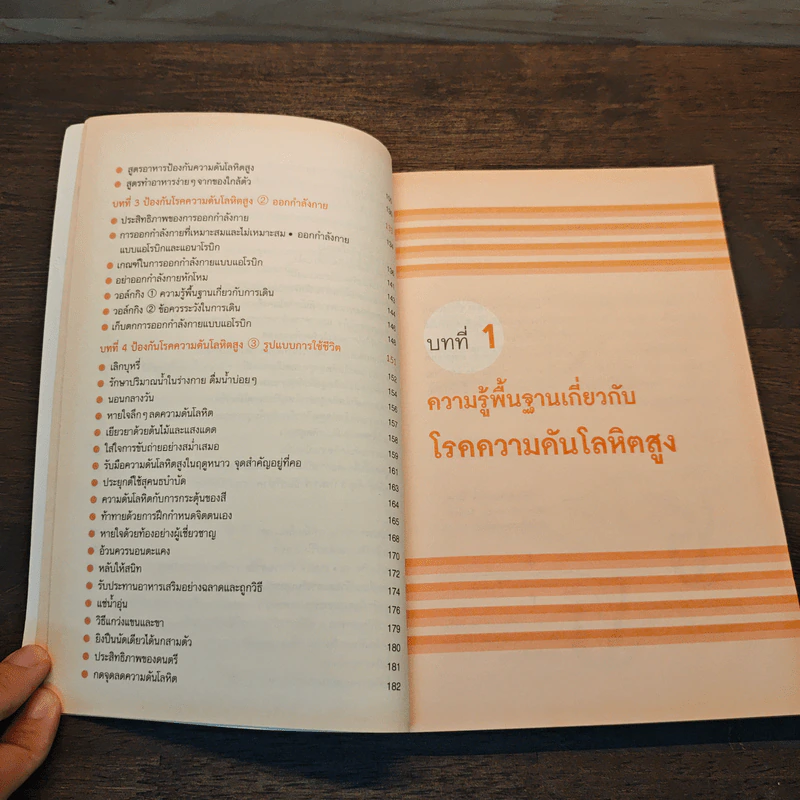 สูตรอาหารป้องกันความดันโลหิตสูง
สูตรทำอาหารง่ายๆจากของใกล้ตัว
บทที่ 3 ป้องกันโรคความดันโลหิตสูง ② ออกกำลังกาย
ประสิทธิภาพของการออกกำลังกาย
การออกกำลังกายที่เหมาะสมและไม่เหมาะสม • ออกกำลังกาย
แบบแอโรบิกและแอนาโรบิก
เกณฑ์ในการออกกำลังกายแบบแอโรบิก
อย่าออกกำลังกายหักโหม 141
วอล์กกิง ① ความรู้พื้นฐานเกี่ยวกับการเดิน 143
วอล์กกิง ② ข้อควรระวังในการเดิน 144
เก็บตกการออกกำลังกายแบบแอโรบิก 146
148
บทที่ 4 ป้องกันโรคความดันโลหิตสูง ③ รูปแบบการใช้ชีวิต 151
เลิกบุหรี่
รักษาปริมาณน้ำในร่างกาย ดื่มน้ำบ่อยๆ 152
นอนกลางวัน 154
หายใจลึกๆลดความดันโลหิต 156
เยียวยาด้วยต้นไม้และแสงแดด 157
ใส่ใจการขับถ่ายอย่างสม่ำเสมอ 158
รับมือความดันโลหิตสูงในฤดูหนาว จุดสำคัญอยู่ที่คอ 159
ประยุกต์ใช้สุคนธบำบัด 161
ความดันโลหิตกับการกระตุ้นของสี 163
ท้าทายด้วยการฝึกกำหนดจิตตนเอง 164
หายใจด้วยท้องอย่างผู้เชี่ยวชาญ 165
อ้วนควรนอนตะแคง 168
หลับให้สนิท 170
รับประทานอาหารเสริมอย่างฉลาดและถูกวิธี 172
แช่น้ำอุ่น 174
วิธีแกว่งแขนและขา 176
ยิงปืนนัดเดียวได้นกสามตัว 179
ประสิทธิภาพของดนตรี 180
กดจุดลดความดันโลหิต 181
182
บทที่ 1
ความรู้พื้นฐานเกี่ยวกับ
โรคความดันโลหิตสูง